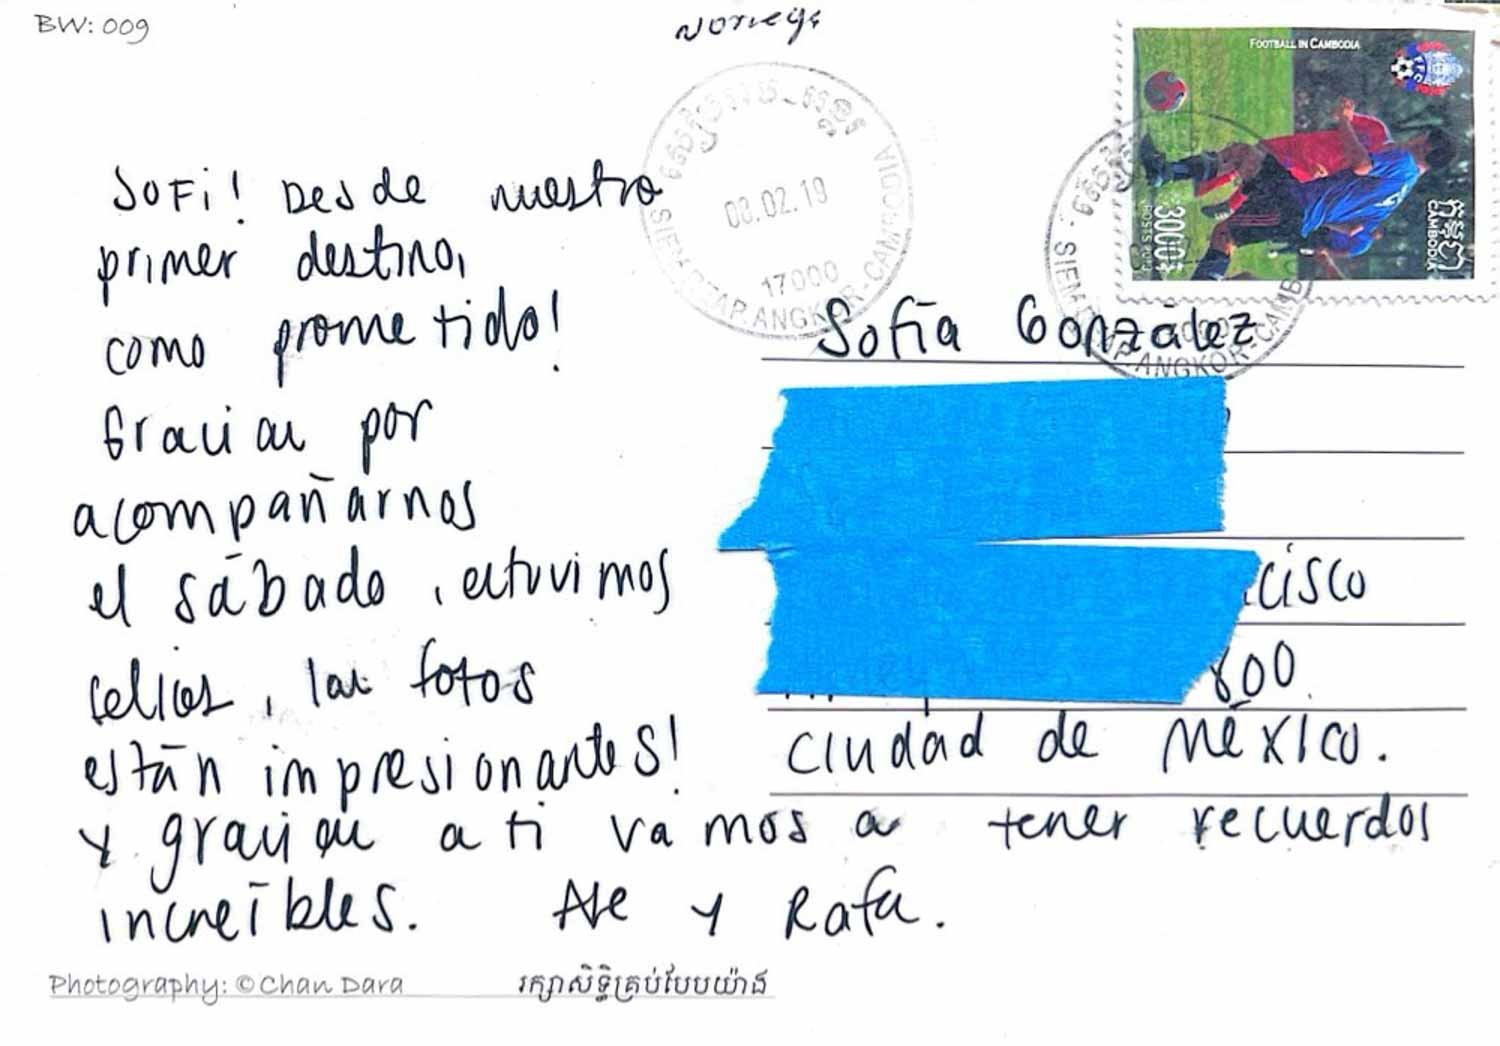 BW: 009
FOOTBALL IN CAMBODIA
3000
CAMBODIA
08.02.19
17000
SIEM REAP ANGKOR-CAMBODIA
Sofi! Desde nuestro
primer destino,
como prometido!
Gracias por
acompañarnos
el sábado, estuvimos
felices, las fotos
están impresionantes!
y gracias a ti vamos a tener recuerdos
increíbles. Ale y Rafa.
Sofía González
cisco
800
Ciudad de México.
Photography: © Chan Dara
រក្សាសិទ្ធិគ្រប់បែបយ៉ាង